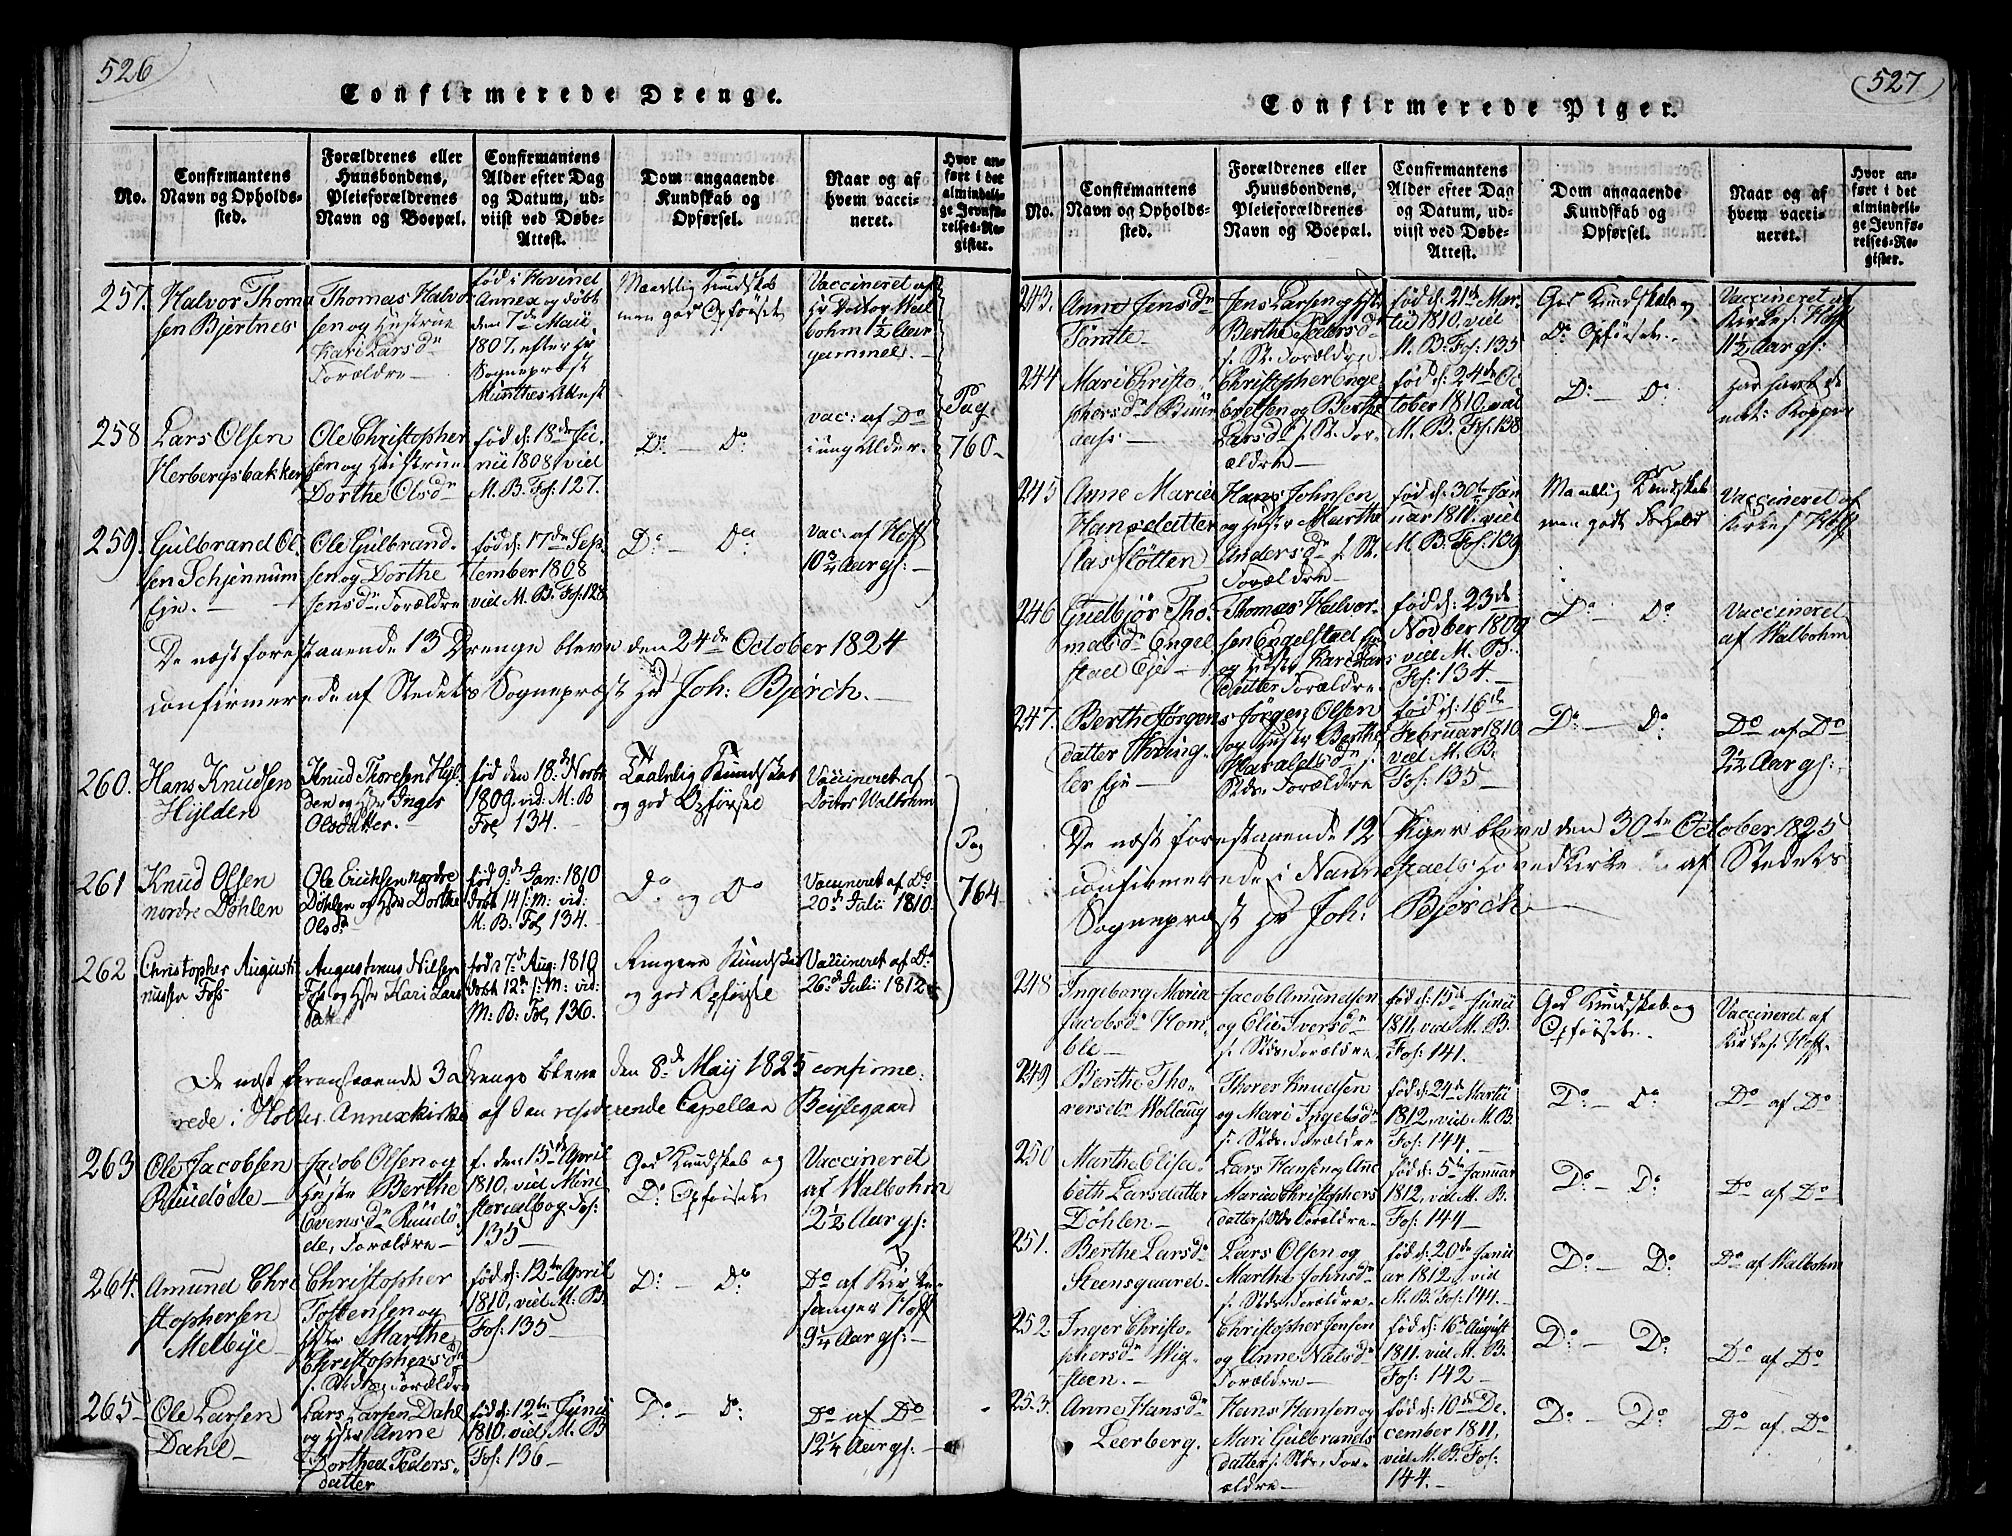 526
Confirmerede Drenge.
No.
Confirmantens
Navn og Opholds-
sted.
Forældrenes eller
Huusbondens,
Pleieforældrenes
Navn og Boepæl.
Confirmantens
Alder efter Dag
og Datum, ud-
viist ved Døbe-
Attest.
Dom angaaende
Kundskab og
Opførsel.
Naar og af
hvem vacci-
neret.
Hvor an-
ført i det
almindeli-
ge Jevnfø-
relses-Re-
gister.
257.
Halvor Thoma
sen Bjertnes
Thomas Halvor
sen og Hustrue
Kari Larsdr
Forældre
fød i Hovind
Annex og døbt
den 7de Maii
1807. efter Hr
Sognepræst
Munthes Attest
Maadelig Kundskab
men god Opførsel
Vaccineret af
Hr Doctor Wal
bohm 1 1/2 Aar
gammel.
258
Lars Olsen
Herbergsbakken
Ole Christopher
sen og Hustrue
Dorthe Olsdr
fød d: 18de Ju
nii 1808, vid
M. B. Fol: 127.
Do — Do
vac: af Do
i ung Alder.
Pag
760
259.
Gulbrand Ol
sen Schjennum
Eje.
Ole Gulbrand-
sen og Dorthe
Jensdr Forældre
fød d: 17de Sep
tember 1808
vid M. B. Fol: 128
Do — Do
vac. af Hoff
10 3/4 Aar gl:
De næst forestaaende 13 Drenge bleve den 24de October 1824
confirmerede af Stedets Sognepræst Hr Joh: Bjerch.
260.
Hans Knudsen
Hylden
Knud Thoresen Hyl-
den og Hstr Inger
Olsdatter.
fød den 18de Novbr
1809, vid: M: B
Fol 134.
Taalelig Kundskab
og god Opførsel
Vaccineret af
Doctor Walbohm
261
Knud Olsen
nordre Døhlen
Ole Erichsen nordre
Døhlen og Hstr Dorthe
Olsdr
fød 9de Jan: 1810
døbt 14 s: M: vid:
M: B: Fol 134.
Do og Do
Vaccineret af Do
20de Julii 1810.
Pag
764
262
Christopher Augusti
nussen Foss
Augustinus Nilsen
Foss og Hstr Kari Lars
datter
fød 7de Aug: 1810
døbt 12te s: M: vid:
M: B: Fol 136.
Ringere Kundskab
og god Opførsel
Vaccineret af Do
26de Julii 1812
De næst foranstaaende 3 Drenge bleve den 8de Maij 1825 confirme:
rede i Holter Annexkirke af den residerende Capellan Beylegaard
263
Ole Jacobsen
Ruudøde
Jacob Olsen og
Hustr Berthe
Evensdr Ruudø
de, Forældre
f. den 15de April
1810, vid Mini
sterialbog Fol:
135
God Kundskab og
Do Opførsel
Vaccineret
af Walbohm
2 1/2 Aar gl:
264.
Amund Chri
stophersen
Melbye
Christopher
Tostensen og
Hstr Marthe
Christophersdr
s. Stds Forældre
fød d: 12te April
1810, vid M. B.
Fol: 135
Do — Do
Do af Kirke
sanger Hoff
9 1/4 Aar gl:
265
Ole Larsen
Dahl
Lars Larsen Dahl
og Hstr Anne
Dorthea Peders-
datter
fød d: 12te Junii
1810, vid M. B
Fol: 136
Do — Do
Do af Do
12 1/4 Aar gl:
527
Confirmerede Piger.
No.
Confirmantens
Navn og Opholds-
sted.
Forældrenes eller
Huusbondens,
Pleieforældrenes
Navn og Boepæl.
Confirmantens
Alder efter Dag
og Datum, ud-
viist ved Døbe-
Attest.
Dom angaaende
Kundskab og
Opførsel.
Naar og af
hvem vacci-
neret.
Hvor an-
ført i det
almindeli-
ge Jevnfø-
relses-Re-
gister.
243.
Anne Jensdr
Tømte
Jens Larsen og Hstr
Berthe Pedersdr
s. St. Forældre
fød d: 21de Mar-
tii 1810. vid
M. B. Fol: 135
God Kundskab og
Do Opførsel
Vaccineret af
Kirkes: Hoff
11 1/2 Aar gl:
244
Mari Christo
phersdr Buur
aas
Christopher Enge
bretsen og Berthe
Larsdr s. St. For-
ældre
fød d: 24de Oc
tober 1810, vid
M. B. Fol: 138
Do — Do
har havt de
nat: Kopper
245
Anne Marie
Hansdatter
Aasslotten
Hans Johnsen
og Hustr Marthe
Andersdr s. St.
Forældre
fød d: 30te Jan
uar 1811. vid
M. B. Fol: 139
Maadelig Kundskab
men godt Forhold
Vaccineret af
Kirkes: Hoff
246
Gudbjør Tho
masdr Engel
stad Eje
Thomas Halvor-
sen Engelstad Eje
og Hustr Kari Lars
datter Forældre
fød d: 23de
Novber 1809
vid M. B.
Fol: 134.
Do — Do
Vaccineret
af Walbohm
247.
Berthe Jørgens
datter
ler Eje
Jørgen Olsen
og Hustr Berthe
Haraldsdr s.
Stds. Forældre
fød d: 16de
Februar 1810
vid M. B.
Fol: 135
Do — Do
Do af Do
2 1/2 Aar gl:
De næst forestaaende 12 Piger bleve den 30te October 1825
confirmerede i Nannestads Hovedkirke af Stedets
Sognepræst Hr Joh: Bjerch
248
Ingeborg Maria
Jacobsdr Hom-
ble
Jacob Amundsen
og Elie Iversdr
s. Stds. Forældre
fød d: 15de Junii
1811, vid M. B.
Fol: 141.
God Kundskab og
Opførsel.
Vaccineret af
Kirkes: Hoff.
249
Berthe Tho-
rersdr Wollaug
Thorer Knudsen
og Mari Ingebsdr
s. Stds. Forældre
fød d: 24de Martii
1812, vid M. B.
Fol: 144.
Do — Do
Do af Do
250
Marthe Elisa-
beth Larsdatter
Døhlen
Lars Hansen og Anne
Marie Christophers
datter s. Stds Forældre
fød d: 5te Januar
1812, vid M. B.
Fol: 144
Do — Do
Do af Do
251.
Berthe Larsdr
Steensgaard
Lars Olsen og
Marthe Johnsdr
s. Stds. Forældre
fød d: 20de Janu
ar 1812, vid
M. B. Fol: 144.
Do — Do
Do af Walbohm
252
Inger Christo-
phersdr Wig-
steen.
Christopher Jensen
og Anne Nielsdr
Forældre
fød d: 16de August
1811. vid M. B.
Fol: 142
Do — Do
Do af Do
253.
Anne Hansdr
Leerberg.
Hans Hansen og
Mari Gulbrands
datter s. Stds. For-
ældre
fød d: 10de De-
cember 1811,
vid M. B. Fol:
144.
Do — Do
Do af Do